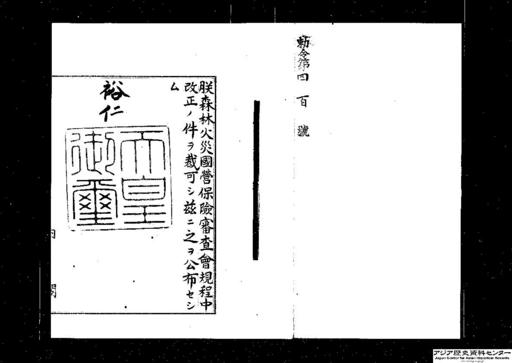 勅令第四百號
朕森林火災國營保險審查會規程中
改正ノ件ヲ裁可シ茲ニ之ヲ公布セシ
ム
裕仁
天皇
御璽
内閣
アジア歴史資料センター
Japan Center for Asian Historical Records